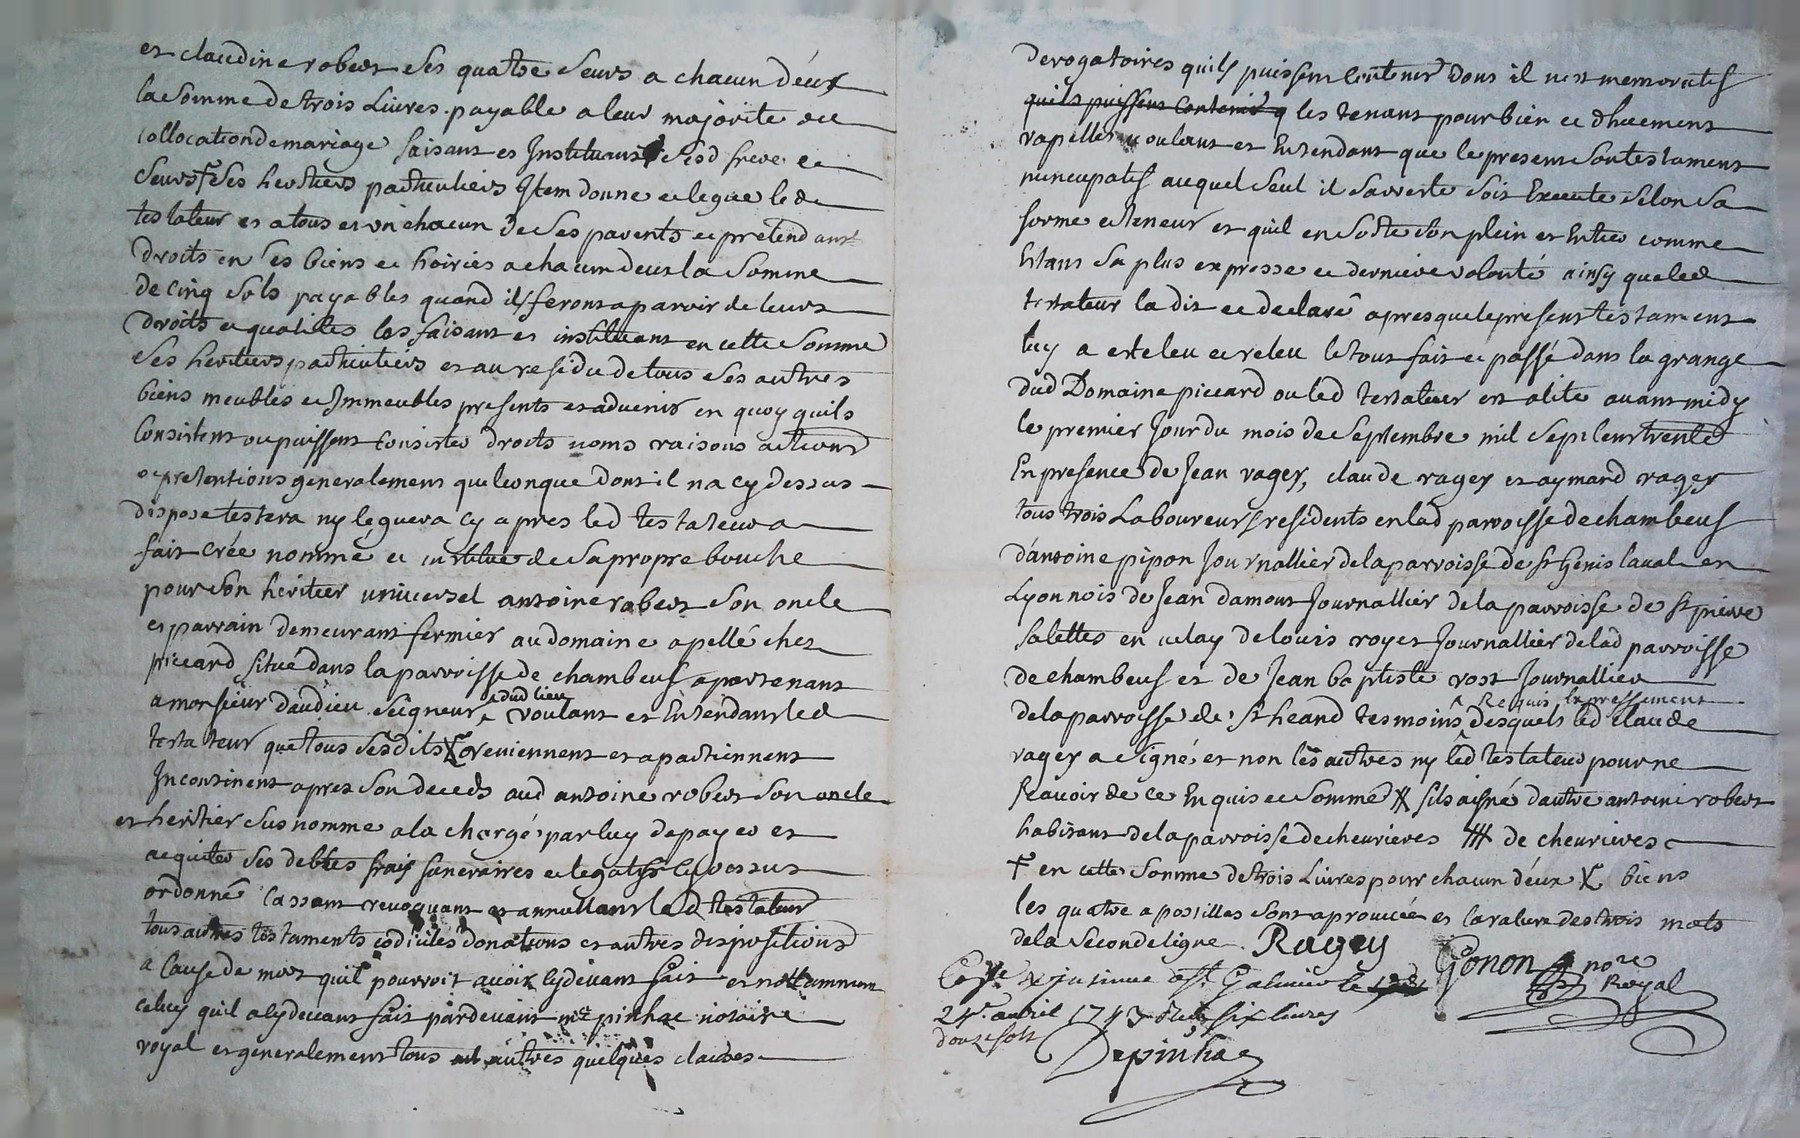 et claudine robert ses quatre seurs a chacun d'eux
la somme de trois Livres payable a leur majorité ou
collocation de mariage faisant et Instituant sesd frere et
seurs + ses heritiers particuliers Item donne et legue led
testateur et a tous et un chacun de ses parents et pretendant
droits en ses biens et hoiries a chacun deux la somme
de cinq sols payables quand ils feront aparoir de leurs
droits et qualittés les faisant et instituant en cette somme
ses heritiers particuliers et au residu de tous ses autres
biens meubles et Immeubles presents et advenir en quoy quils
Consistent ou puissent consister droits noms raisons actions
et pretentions generalement quelconque dont il na cy dessus
dispose testera ny leguera cy apres led testateur a
fait crée nommé et institué de sa propre bouche
pour son heritier universel antoine robert son oncle
et parrain demeurant fermier au domaine apellé chez
piccard situé dans la parroisse de chambeuf apartenant
a monsieur daudieu seigneur dud lieu voulant et Entendant led
testateur que tous sesdits X reviennent et apartiennent
Incontinent apres son deceds aud antoine robert son oncle
et heritier sus nommé a la chargé par luy de payer et
acquiter ses debtes frais funeraires et legats cy dessus
ordonné Cassant revoquant et annullant led testateur
tous autres testaments codiciles donations et autres dispositions
a Cause de mort quil pourroit avoir cy devant fait et nottamment
celuy quil a cy devant fait pardevant mt pinhac notaire
royal et generalement tous autres quelques clauses
derogatoires quils puissent contenir dont il nest memoratif
quils puissent Contenir q les tenant pour bien et dhuement
rapellés voulant et Entendant que le present son testament
nuncupatif auquel seul il sarreste soit Execute selon sa
forme et teneur et quil en sorte son plein et Entier comme
Estant sa plus expresse et derniere volonté ainsy que led
testateur la dit et declaré apres que le present testament
luy a esté leu et releu le tout fait et passé dans la grange
dud Domaine piccard ou led testateur est alité avant midy
le premier Jour du mois de septembre mil sept cent trente
En presence de Jean ragey, claude ragey et aymard ragey
tous trois Laboureurs residents en lad parroisse de chambeuf
d'antoine pipon Journallier de la parroisse de st Genis laval en
Lyonnois de Jean damour Journallier de la parroisse de st pierre
salettes en velay de louis royer Journallier de lad parroisse
de chambeuf et de Jean baptiste vost Journallier
Requis Expressement
de la parroisse de st heand tesmoins desquels led claude
ragey a signé et non les autres ny led testateur pour ne
scavoir de ce Enquis et sommé # fils aisné dautre antoine robert
habitant de la parroisse de chevrieres ## de chevrieres
+ en cette somme de trois Livres pour chacun deux X biens
les quatre apostilles sont aprouvée et la rature des trois mots
de la seconde ligne. Ragey Gonon nore
Royal
Colle & insinue a St Galmier le
24e avril 1743 six livres
douze sols
Depinhac